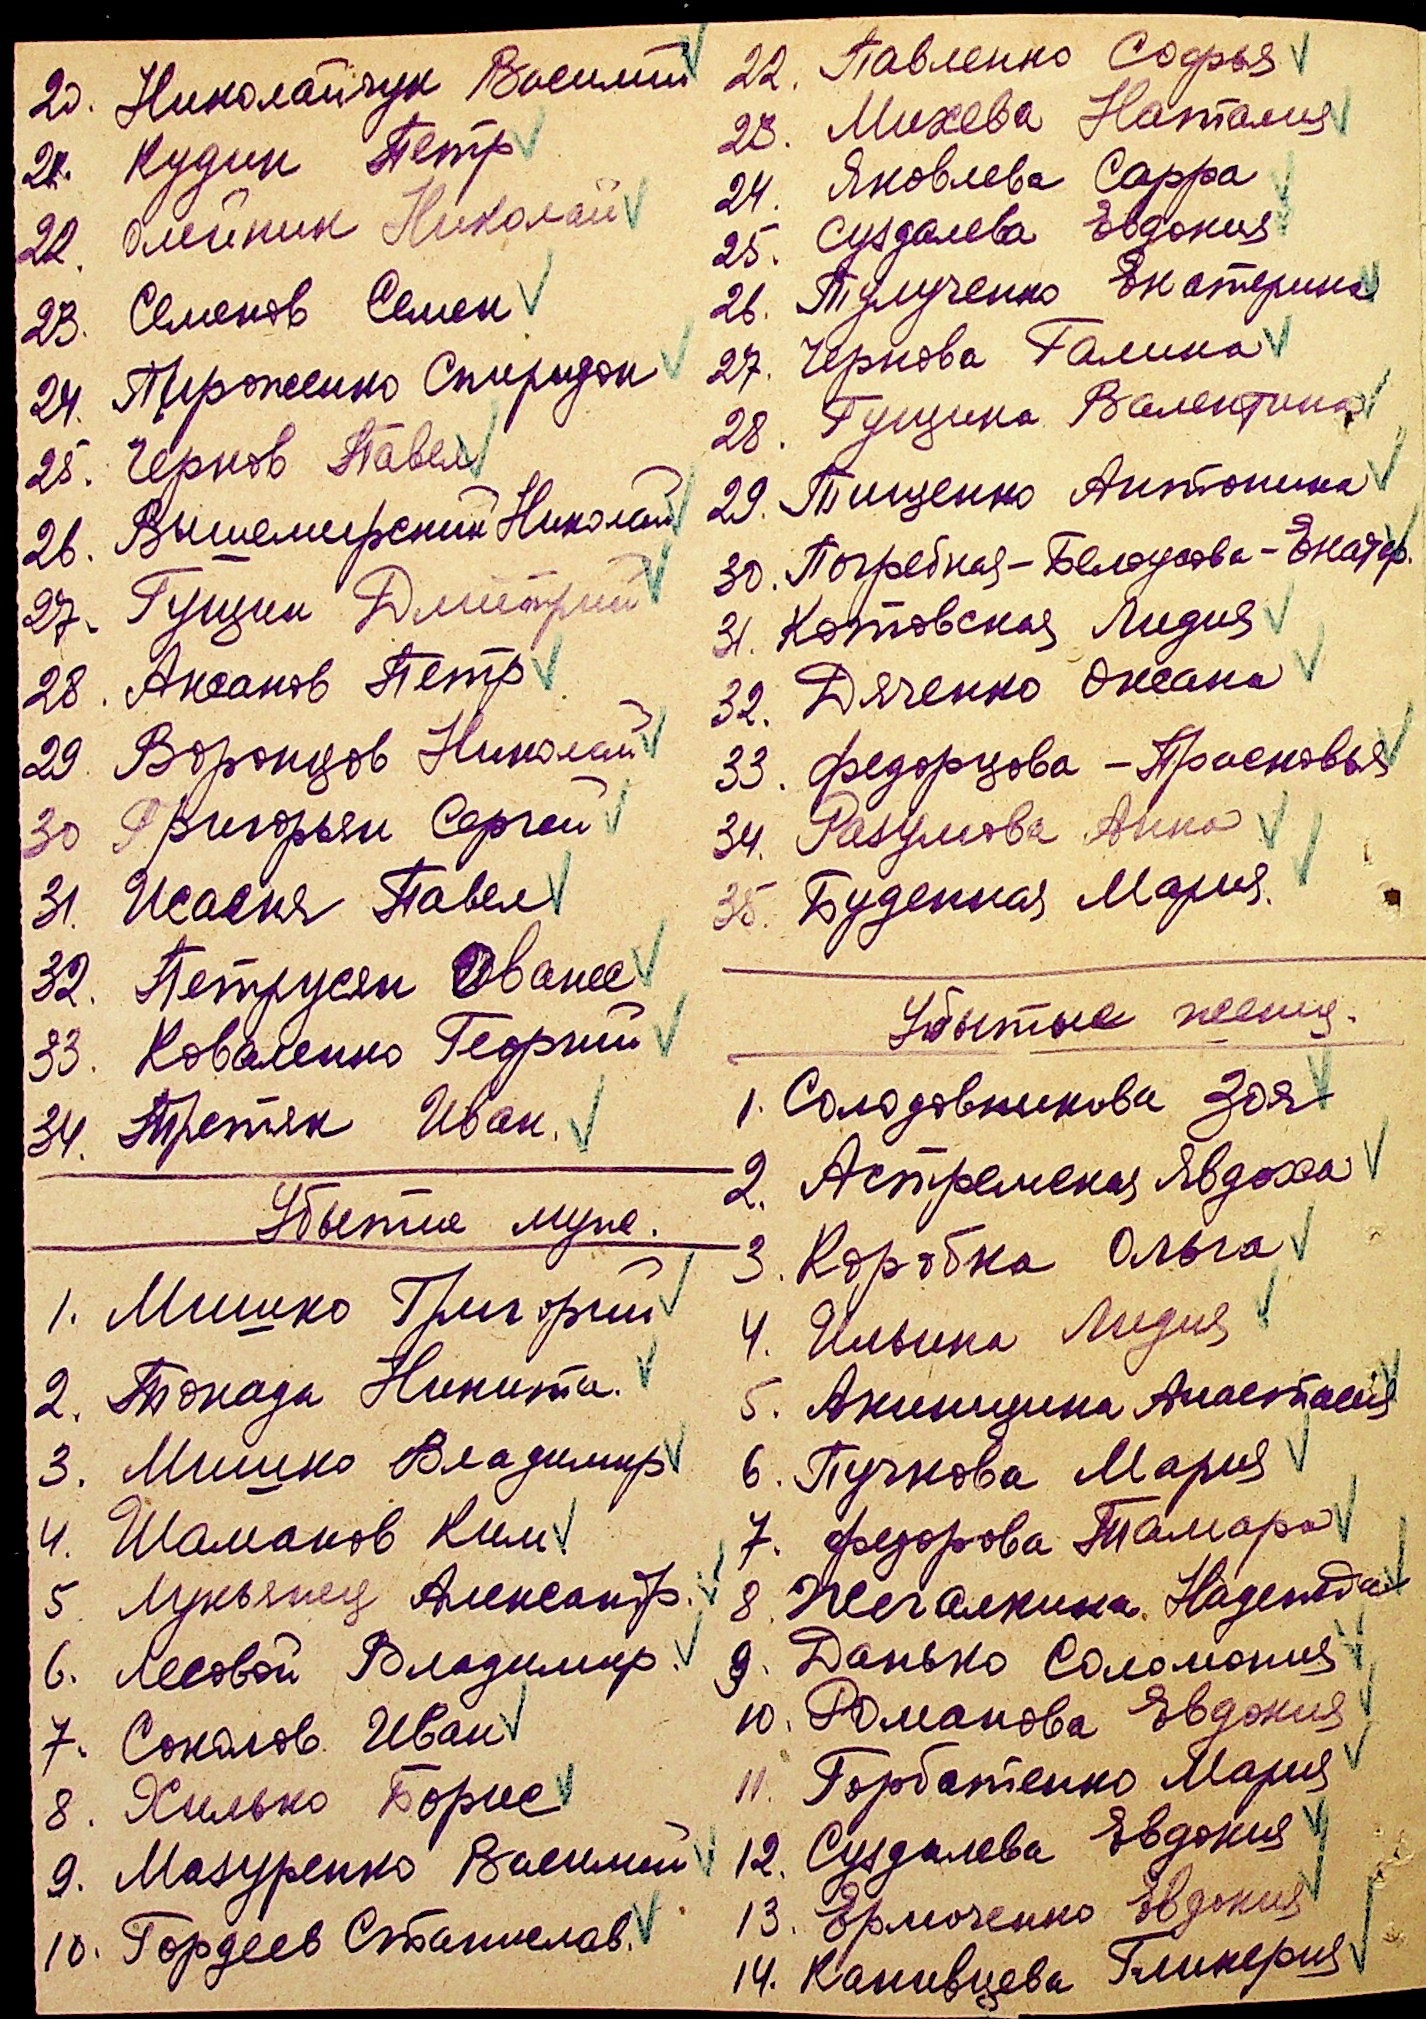 20. Николайчук Василий
21. Кудин Петр
22. Олейник Николай
23. Семенов Семен
24. Пироженко Спиридон
25. Чернов Павел
26. Вышемирский Николай
27. Гущин Дмитрий
28. Аксанов Петр
29 Воронцов Николай
30 Григорьян Сергей
31. Исаеня Павел
32. Петрусян Ованес
33. Коваленко Георгий
34. Третяк Иван.
Убытие муж.
1. Мишко Григорий
2. Токада Никита.
3. Мишко Владимир
4. Шаманов Ким
5 Лукьянец Александр.
6. Лесовой Владимир.
7. Соколов Иван
8. Хилько Борис
9. Мазуренко Василий
10. Гордеев Станислав.
22. Павленко Софья
23. Михева Наталия
24. Яковлева Сарра
25. Суздалева Евдокия
26. Тулученко Екатерина
27. Чернова Галина
28. Гущина Валентина
29. Тищенко Антонина
30. Погребная - Белоусова - Екатер.
31. Котовская Лидия
32. Дяченко Оксана
33. Федорцова - Прасковья
34. Разумова Анна
35. Буденная Мария.
Убытые женщ.
1. Солодовникова Зоя
2. Астремская Явдоха
3. Коробка Ольга
4. Ильина Лидия
5. Акиншина Анастасия
6. Пучкова Мария
7. Федорова Тамара
8. Жегалкина Надежда
9. Данько Соломония
10. Романова Евдокия
11. Горбатенко Мария
12. Суздалева Евдокия
13. Ермоченко Евдокия
14. Канивцева Гликерия